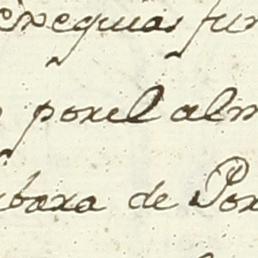 exequias fun
porel alm
rbara de Por